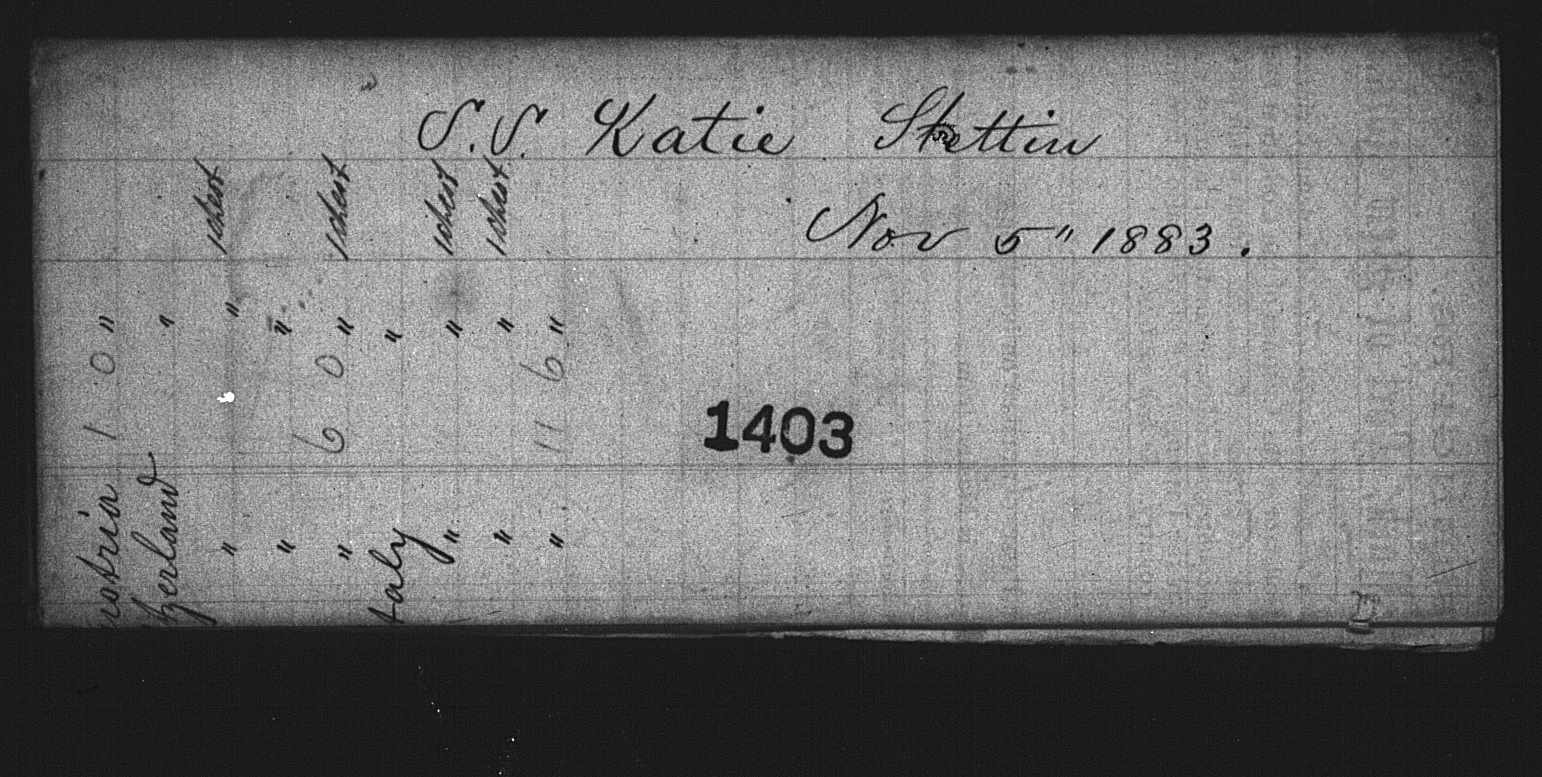 S.S. Katie Stettin
Nov 5" 1883.
1403
1 chest
1 chest
1 chest
1 chest
" " " " " " " " "
1 0
6 0
11 6
ustria
tzerland
" " "
taly
" " "